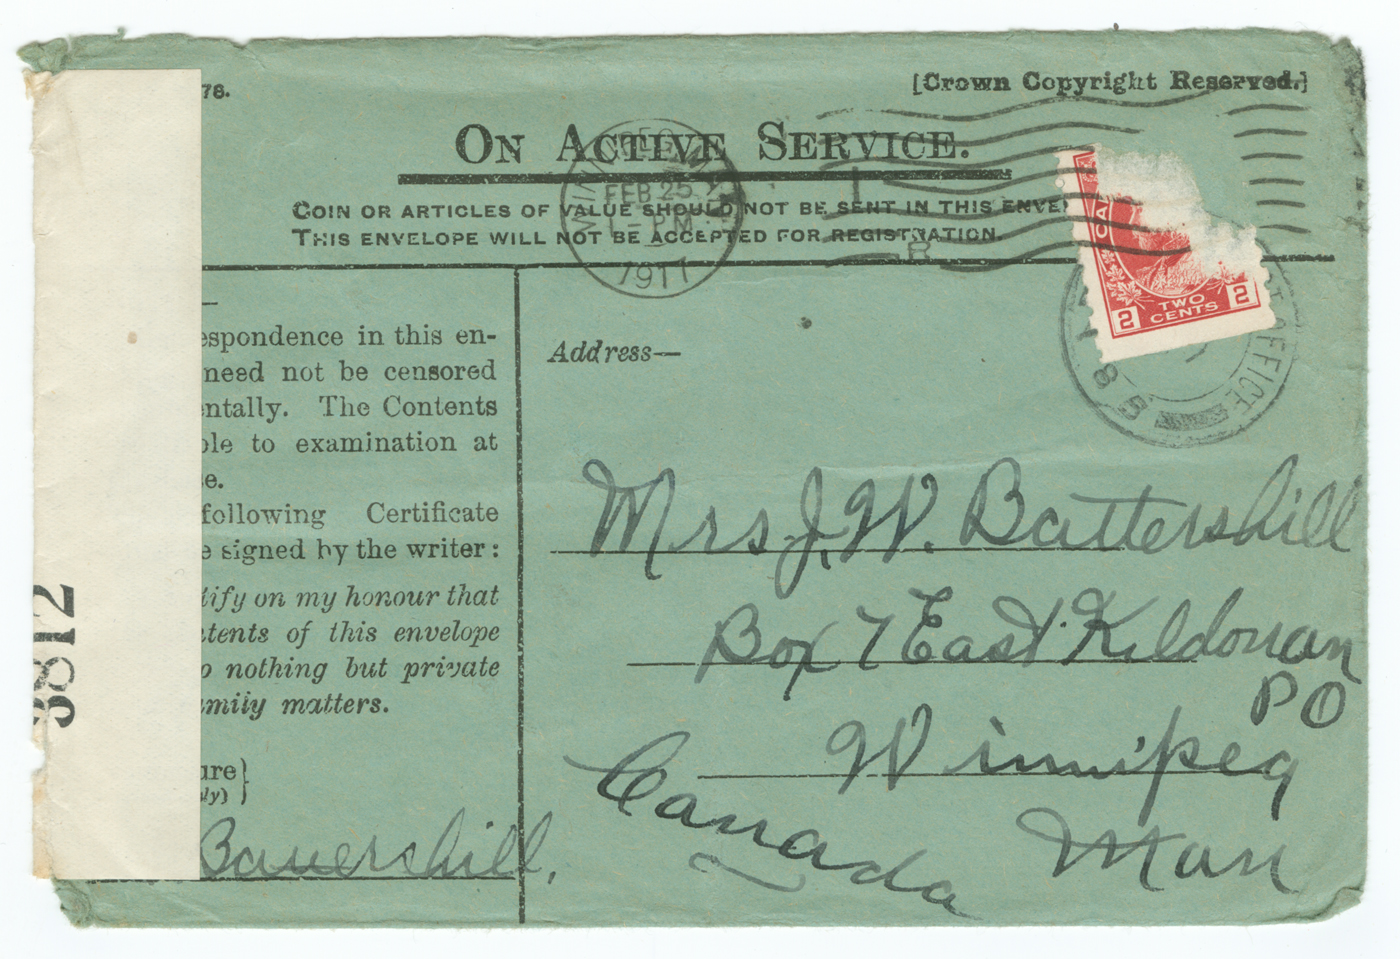 78.
[Crown Copyright Reserved.]
ON ACTIVE SERVICE.
COIN OR ARTICLES OF VALUE SHOULD NOT BE SENT IN THIS ENVE
THIS ENVELOPE WILL NOT BE ACCEPTED FOR REGISTRATION.
WINNIPEG
FEB 25
1-PM
1917
CA
2 TWO CENTS 2
OFFICE
8 5
espondence in this en-
need not be censored
entally. The Contents
ble to examination at
e.
following Certificate
e signed by the writer:
tify on my honour that
tents of this envelope
o nothing but private
amily matters.
ure}
ly)
Battershill,
3812
Address—
Mrs J. W. Battershill
Box 7 East Kildonan
PO
Winnipeg
Man
Canada